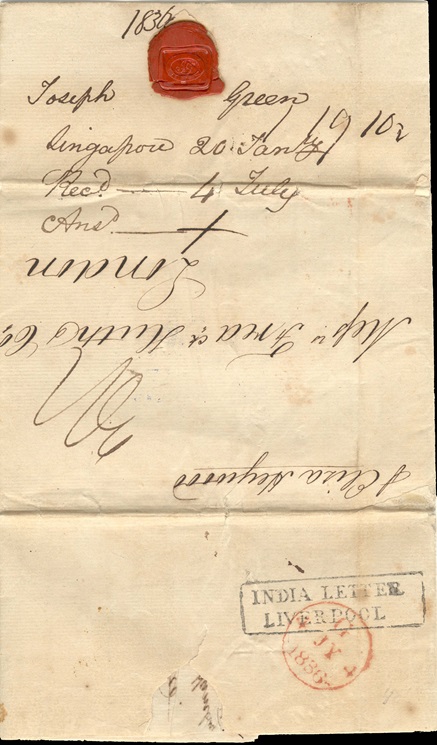 1836
Joseph Green
Singapore 20 Jany
Recd 4 July
Ansd
London
Messrs Fredk Huth & Co
p Eliza Heywood
INDIA LETTER
LIVERPOOL
JY 4
1836